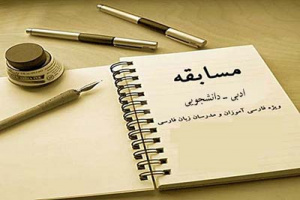 مسابقه
ادبی - دانشجویی
ویژه فارسی آموزان و مدرسان زبان فارسی